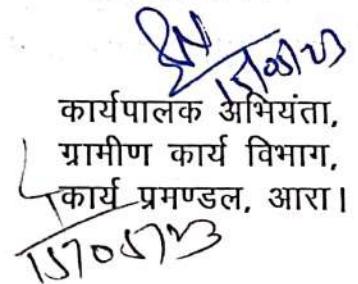 15/05/23
कार्यपालक अभियंता,
ग्रामीण कार्य विभाग,
कार्य प्रमण्डल, आरा।
15/05/23